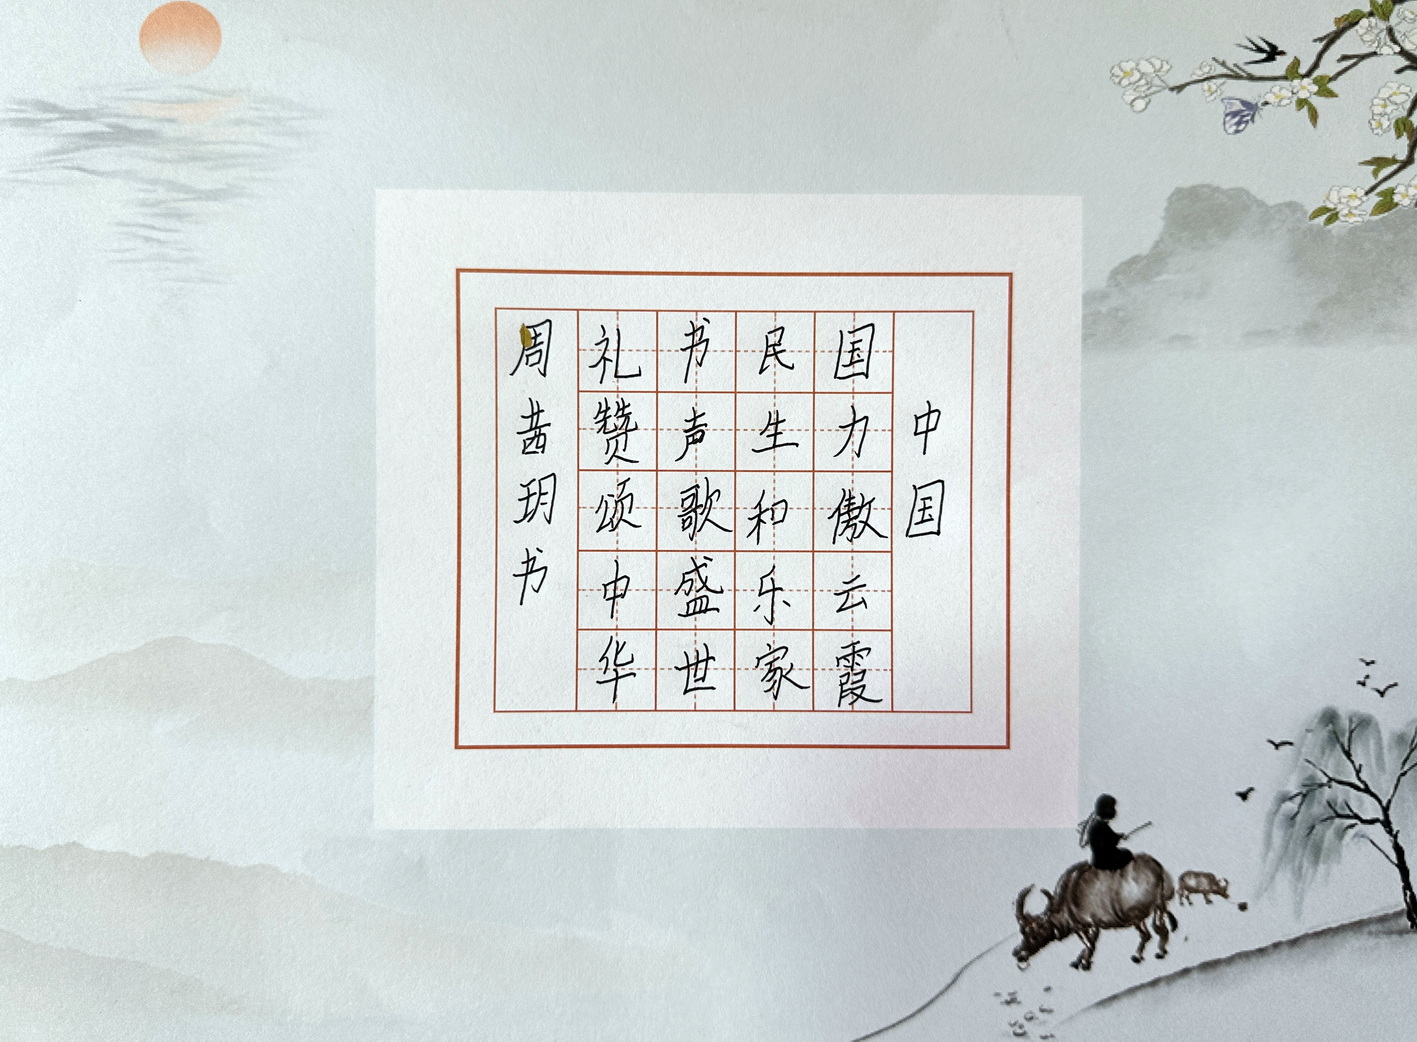 中国
国力傲云霞
民生和乐家
书声歌盛世
礼赞颂中华
周茜玥书